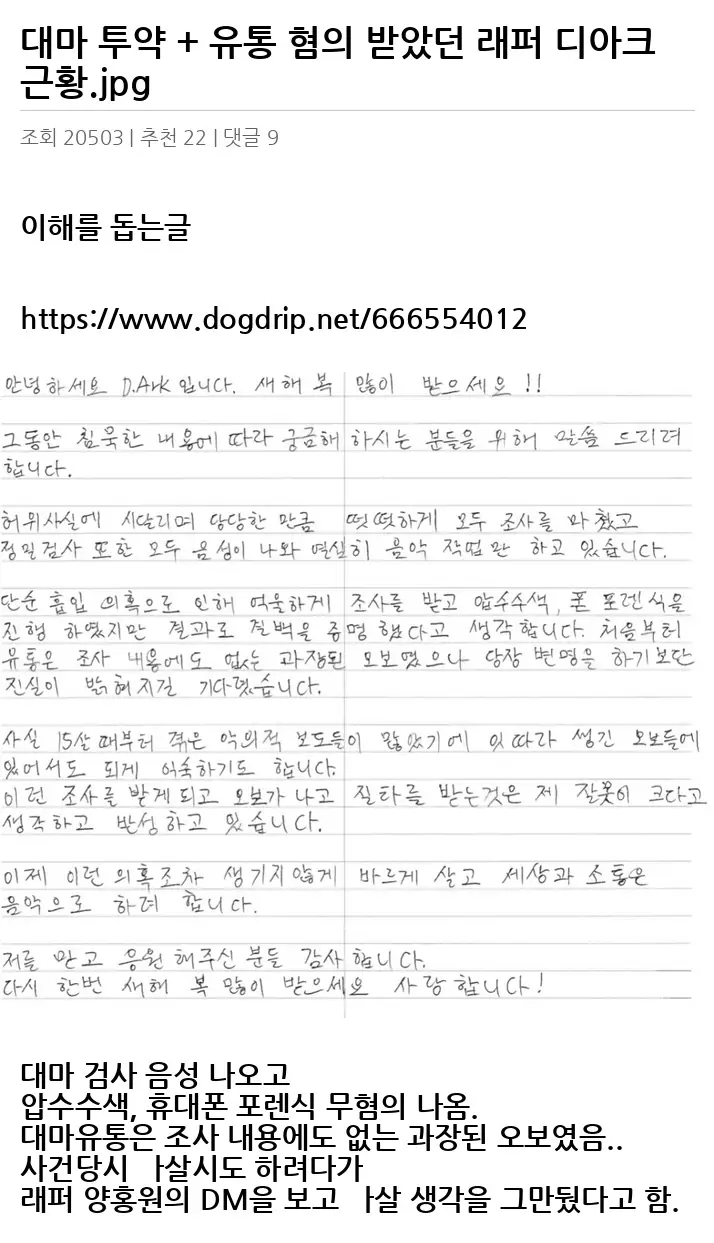 대마 투약 + 유통 혐의 받았던 래퍼 디아크
근황.jpg
조회 20503 | 추천 22 | 댓글 9
이해를 돕는글
https://www.dogdrip.net/666554012
안녕하세요 D.Ark 입니다. 새해 복 많이 받으세요 !!
그동안 침묵한 내용에 따라 궁금해 하시는 분들을 위해 말씀 드리려
합니다.
허위사실에 시달리며 당당한 만큼 떳떳하게 모두 조사를 마쳤고
정밀검사 또한 모두 음성이 나와 열심히 음악 작업만 하고 있습니다.
단순 흡입 의혹으로 인해 억울하게 조사를 받고 압수수색, 폰 포렌식을
진행 하였지만 결과로 결백을 증명 했다고 생각합니다. 처음부터
유통은 조사 내용에도 없는 과장된 오보였으나 당장 변명을 하기보단
진실이 밝혀지길 기다렸습니다.
사실 15살 때부터 겪은 악의적 보도들이 많았기에 잇따라 생긴 오보들에
있어서도 되게 익숙하기도 합니다.
이런 조사를 받게 되고 오보가 나고 질타를 받는것은 제 잘못이 크다고
생각하고 반성하고 있습니다.
이제 이런 의혹조차 생기지않게 바르게 살고 세상과 소통은
음악으로 하려 합니다.
저를 믿고 응원 해주신 분들 감사합니다.
다시 한번 새해 복 많이 받으세요 사랑합니다!
대마 검사 음성 나오고
압수수색, 휴대폰 포렌식 무혐의 나옴.
대마유통은 조사 내용에도 없는 과장된 오보였음..
사건당시 살시도 하려다가
래퍼 양홍원의 DM을 보고 살 생각을 그만뒀다고 함.